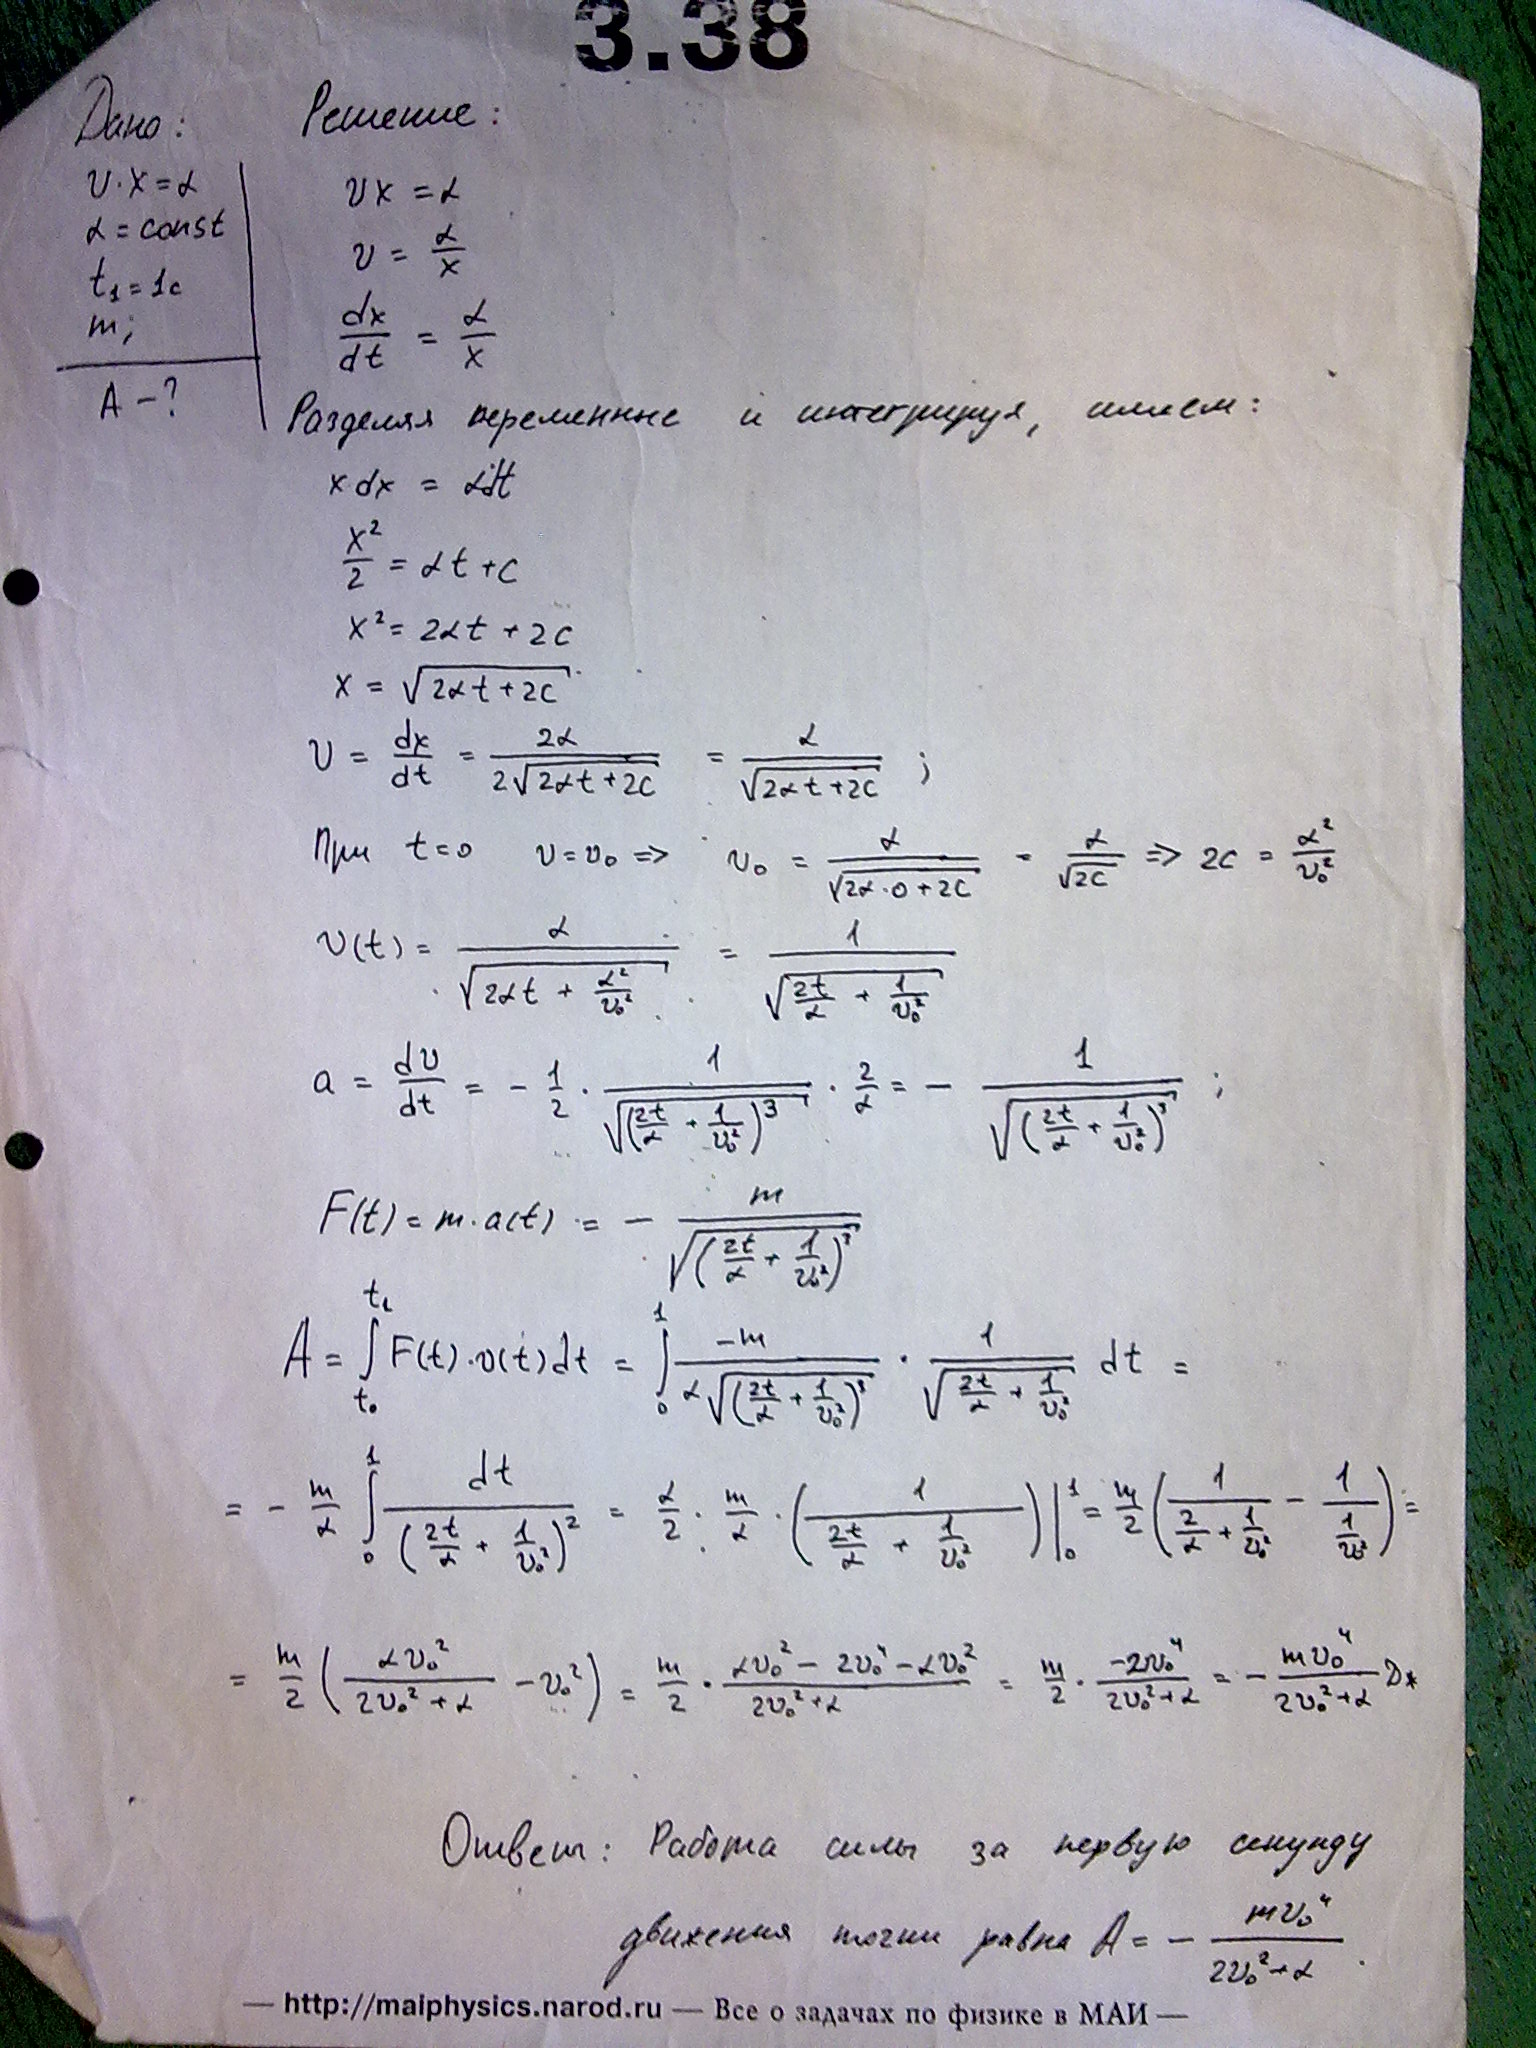 3.38
Дано:
v·x=α
α=const
t₁=1c
m;
A-?
Решение:
vx=α
v = α/x
dx/dt = α/x
Разделяя переменные и интегрируя, имеем:
x dx = αdt
x²/2 = αt+c
x² = 2αt + 2c
x = √(2αt+2c)
v = dx/dt = 2α/(2√(2αt+2c)) = α/√(2αt+2c) ;
При t=0 v=v₀ => v₀ = α/√(2α·0+2c) = α/√(2c) => 2c = α²/v₀²
v(t) = α/√(2αt + α²/v₀²) = 1/√(2t/α + 1/v₀²)
a = dv/dt = - 1/2 · 1/√((2t/α + 1/v₀²)³) · 2/α = - 1/√((2t/α + 1/v₀²)³) ;
F(t) = m·a(t) = - m/√((2t/α + 1/v₀²)³)
A = ∫_{t₀}^{t₁} F(t)·v(t)dt = ∫₀¹ -m/(α√((2t/α + 1/v₀²)³)) · 1/√(2t/α + 1/v₀²) dt =
= - m/α ∫₀¹ dt/(2t/α + 1/v₀²)² = α/2 · m/α · (1/(2t/α + 1/v₀²))|₀¹ = m/2 (1/(2/α + 1/v₀²) - 1/(1/v₀²)) =
= m/2 (αv₀²/(2v₀²+α) - v₀²) = m/2 · (αv₀² - 2v₀⁴ - αv₀²)/(2v₀²+α) = m/2 · -2v₀⁴/(2v₀²+α) = - mv₀⁴/(2v₀²+α) Дж
Ответ: Работа силы за первую секунду
движения точки равна A = - mv₀⁴/(2v₀²+α) .
— http://maiphysics.narod.ru — Все о задачах по физике в МАИ —